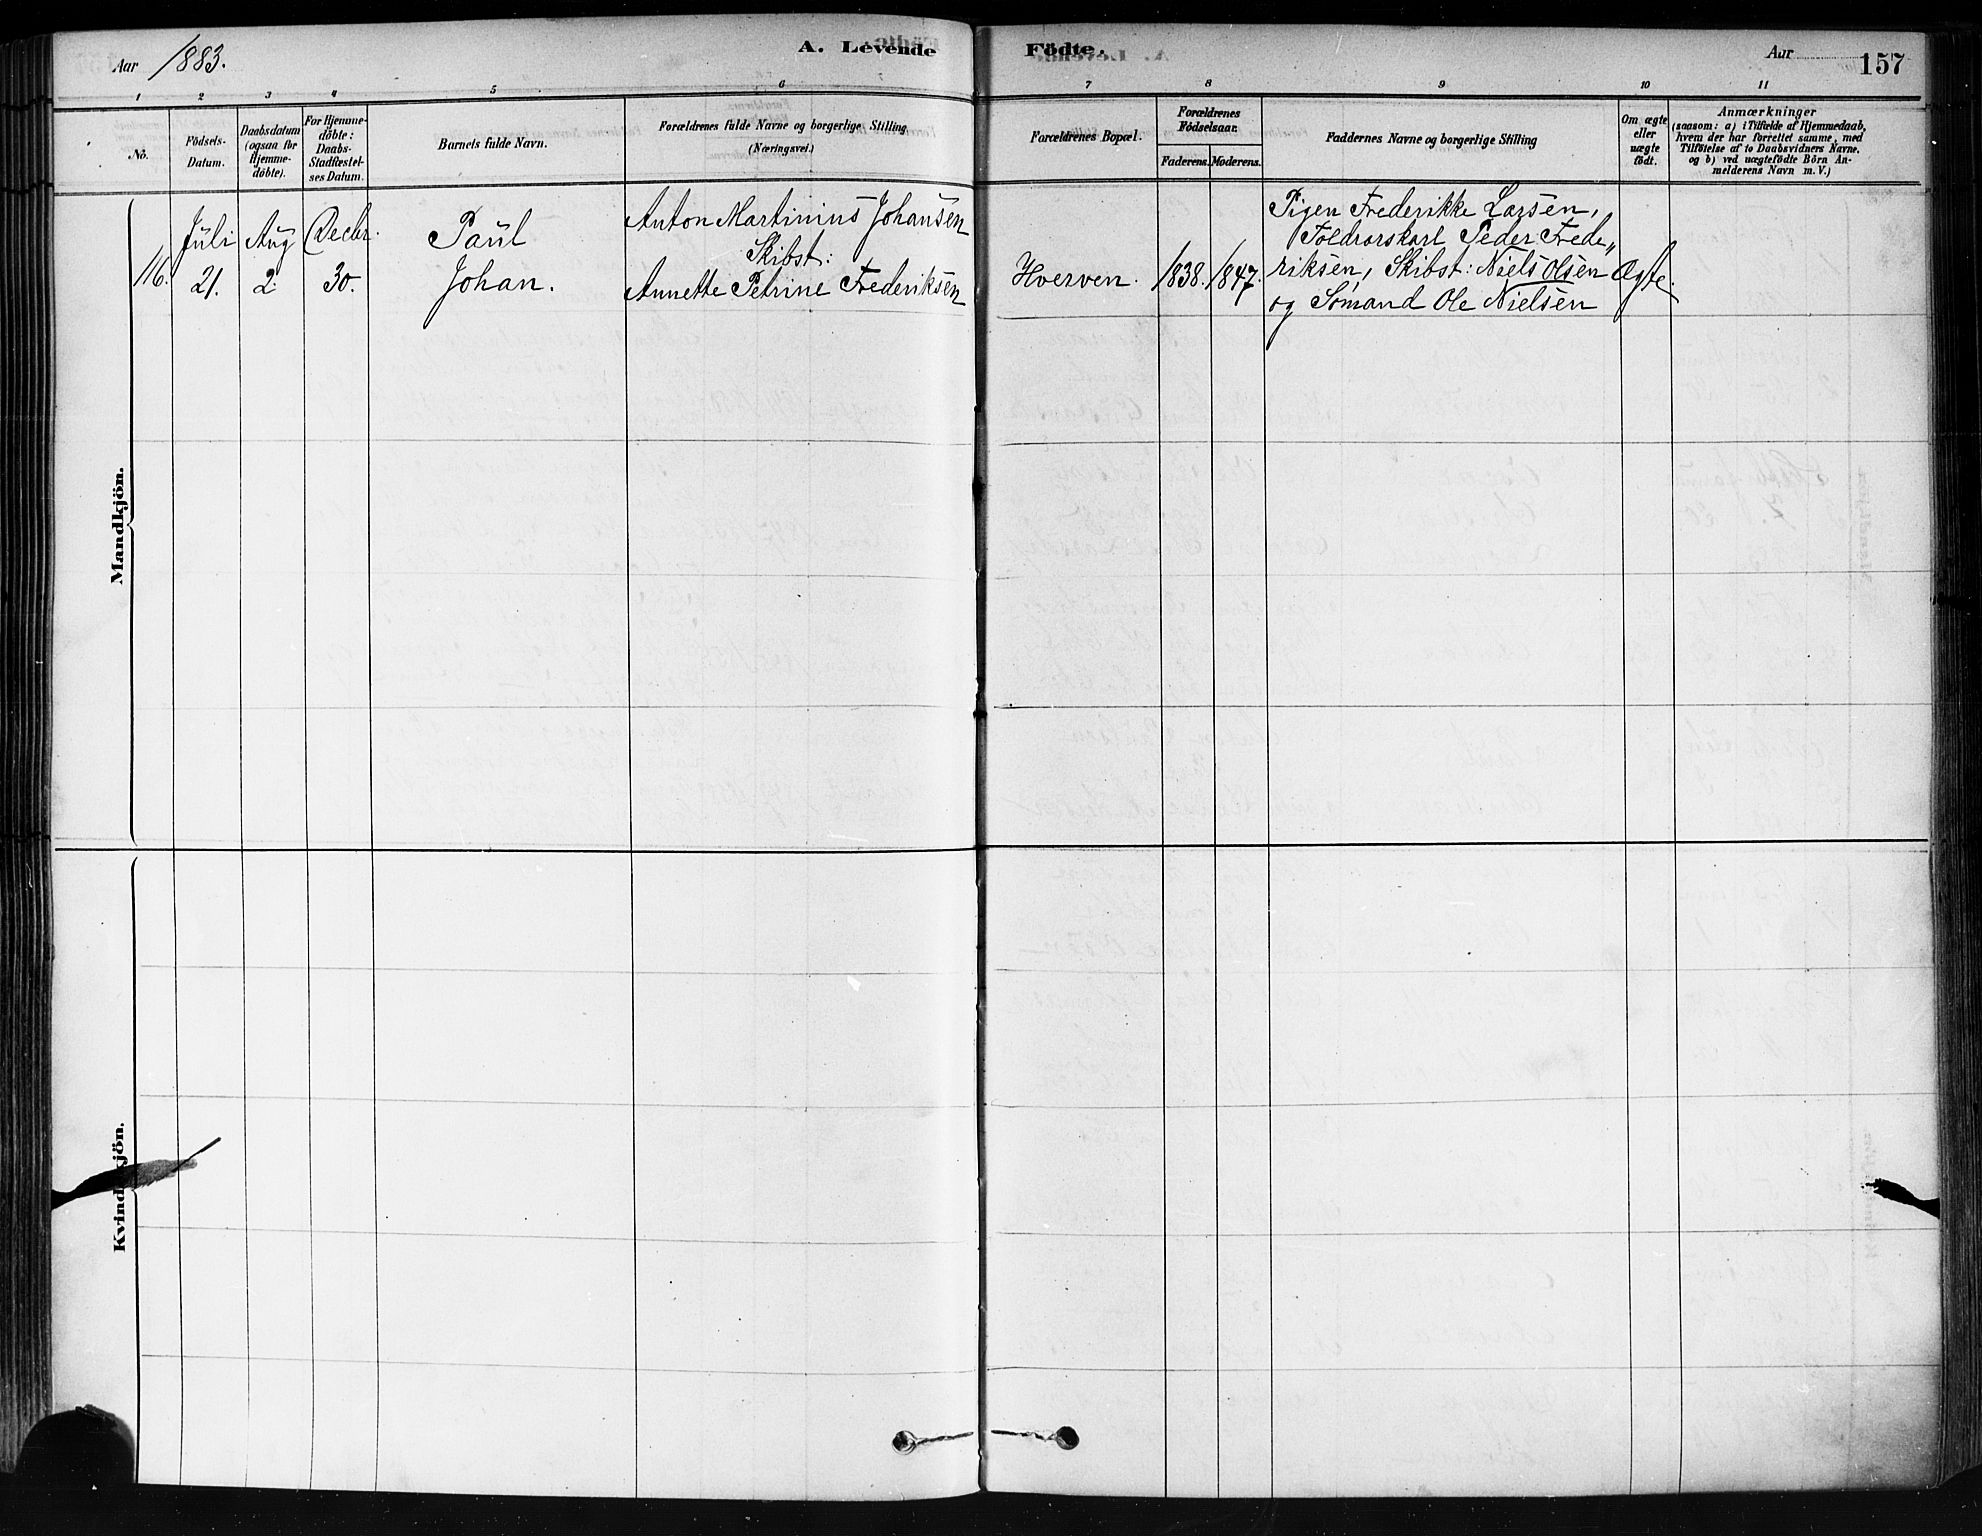 Aar 1883.
A. Levende
Födte.
Aar
157
1 2 3 4 5 6 7 8 9 10 11
No.
Födsels-
Datum.
Daabsdatum
(ogsaa for
Hjemme-
döbte).
For Hjemme-
döbte:
Daabs-
Stadfæstel-
ses Datum.
Barnets fulde Navn.
Forældrenes fulde Navne og borgerlige Stilling
(Næringsvei.)
Forældrenes Bopæl.
Forældrenes
Födselsaar.
Faderens. Moderens.
Faddernes Navne og borgerlige Stilling
Om ægte
eller
uægte
födt.
Anmærkninger
(saasom: a) i Tilfælde af Hjemmedaab,
hvem der har forrettet samme, med
Tilföielse af to Daabsvidners Navne,
og b) ved uægtefödte Börn An-
melderens Navn m. V.)
Mandkjön.
116.
Juli
21.
Aug
2.
Decbr.
30.
Paul
Johan.
Anton Martinius Johansen
Skibst:
Annette Petrine Frederiksen
Hverven.
1838.
1847.
Pigen Frederikke Larsen,
Foldrorskarl Peder Frede„
riksen, Skibst: Niels Olsen
og Sömand Ole Nielsen
Ægte.
Kvindekjön.